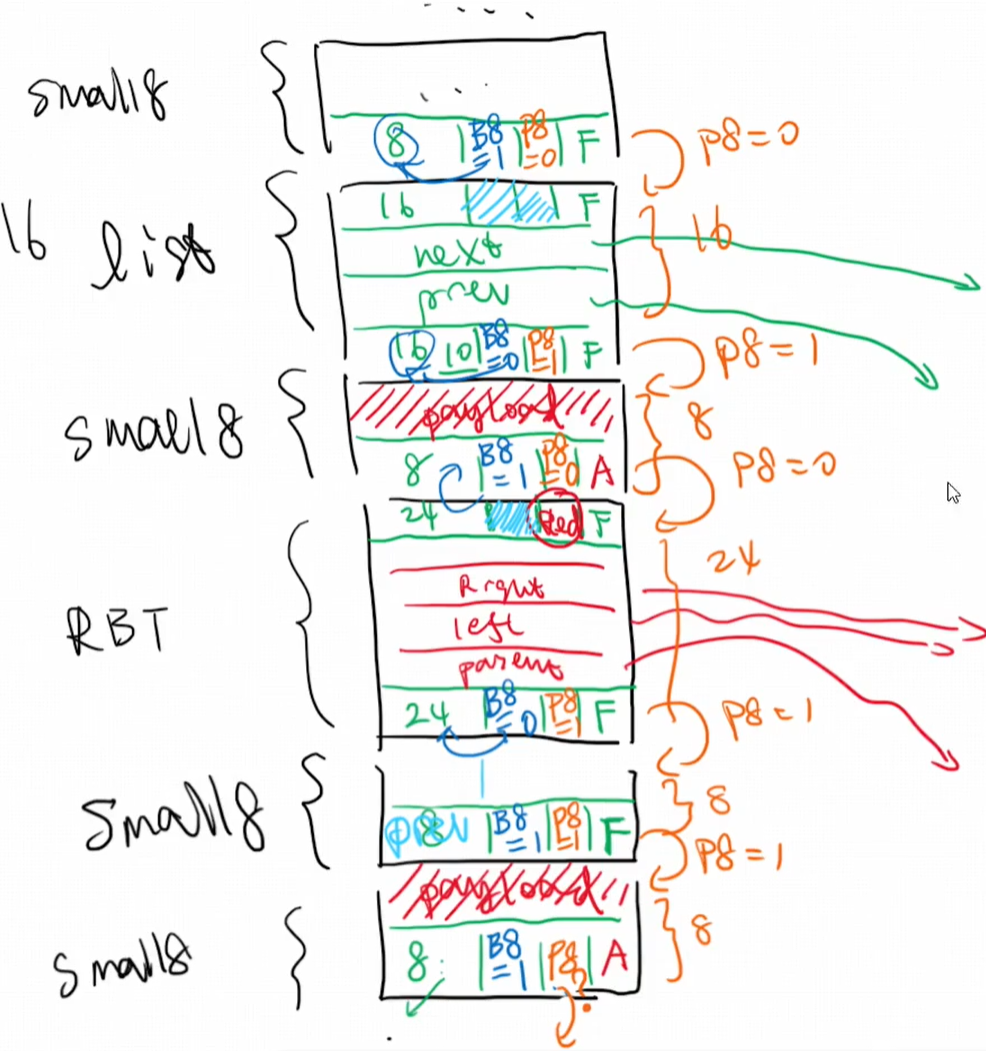 ....
small8
...
8 B8=1 P8=0 F
P8=0
16 list
16 F
16
next
prev
16 10 B8=0 P8=1 F
P8=1
small8
payload
8
8 B8=1 P8=0 A
P8=0
24 Red F
24
RBT
Right
left
parent
24 B8=0 P8=1 F
P8=1
small8
8
prev 8 B8=1 P8=1 F
P8=1
payload
small8
8 B8=1 P8? A
8